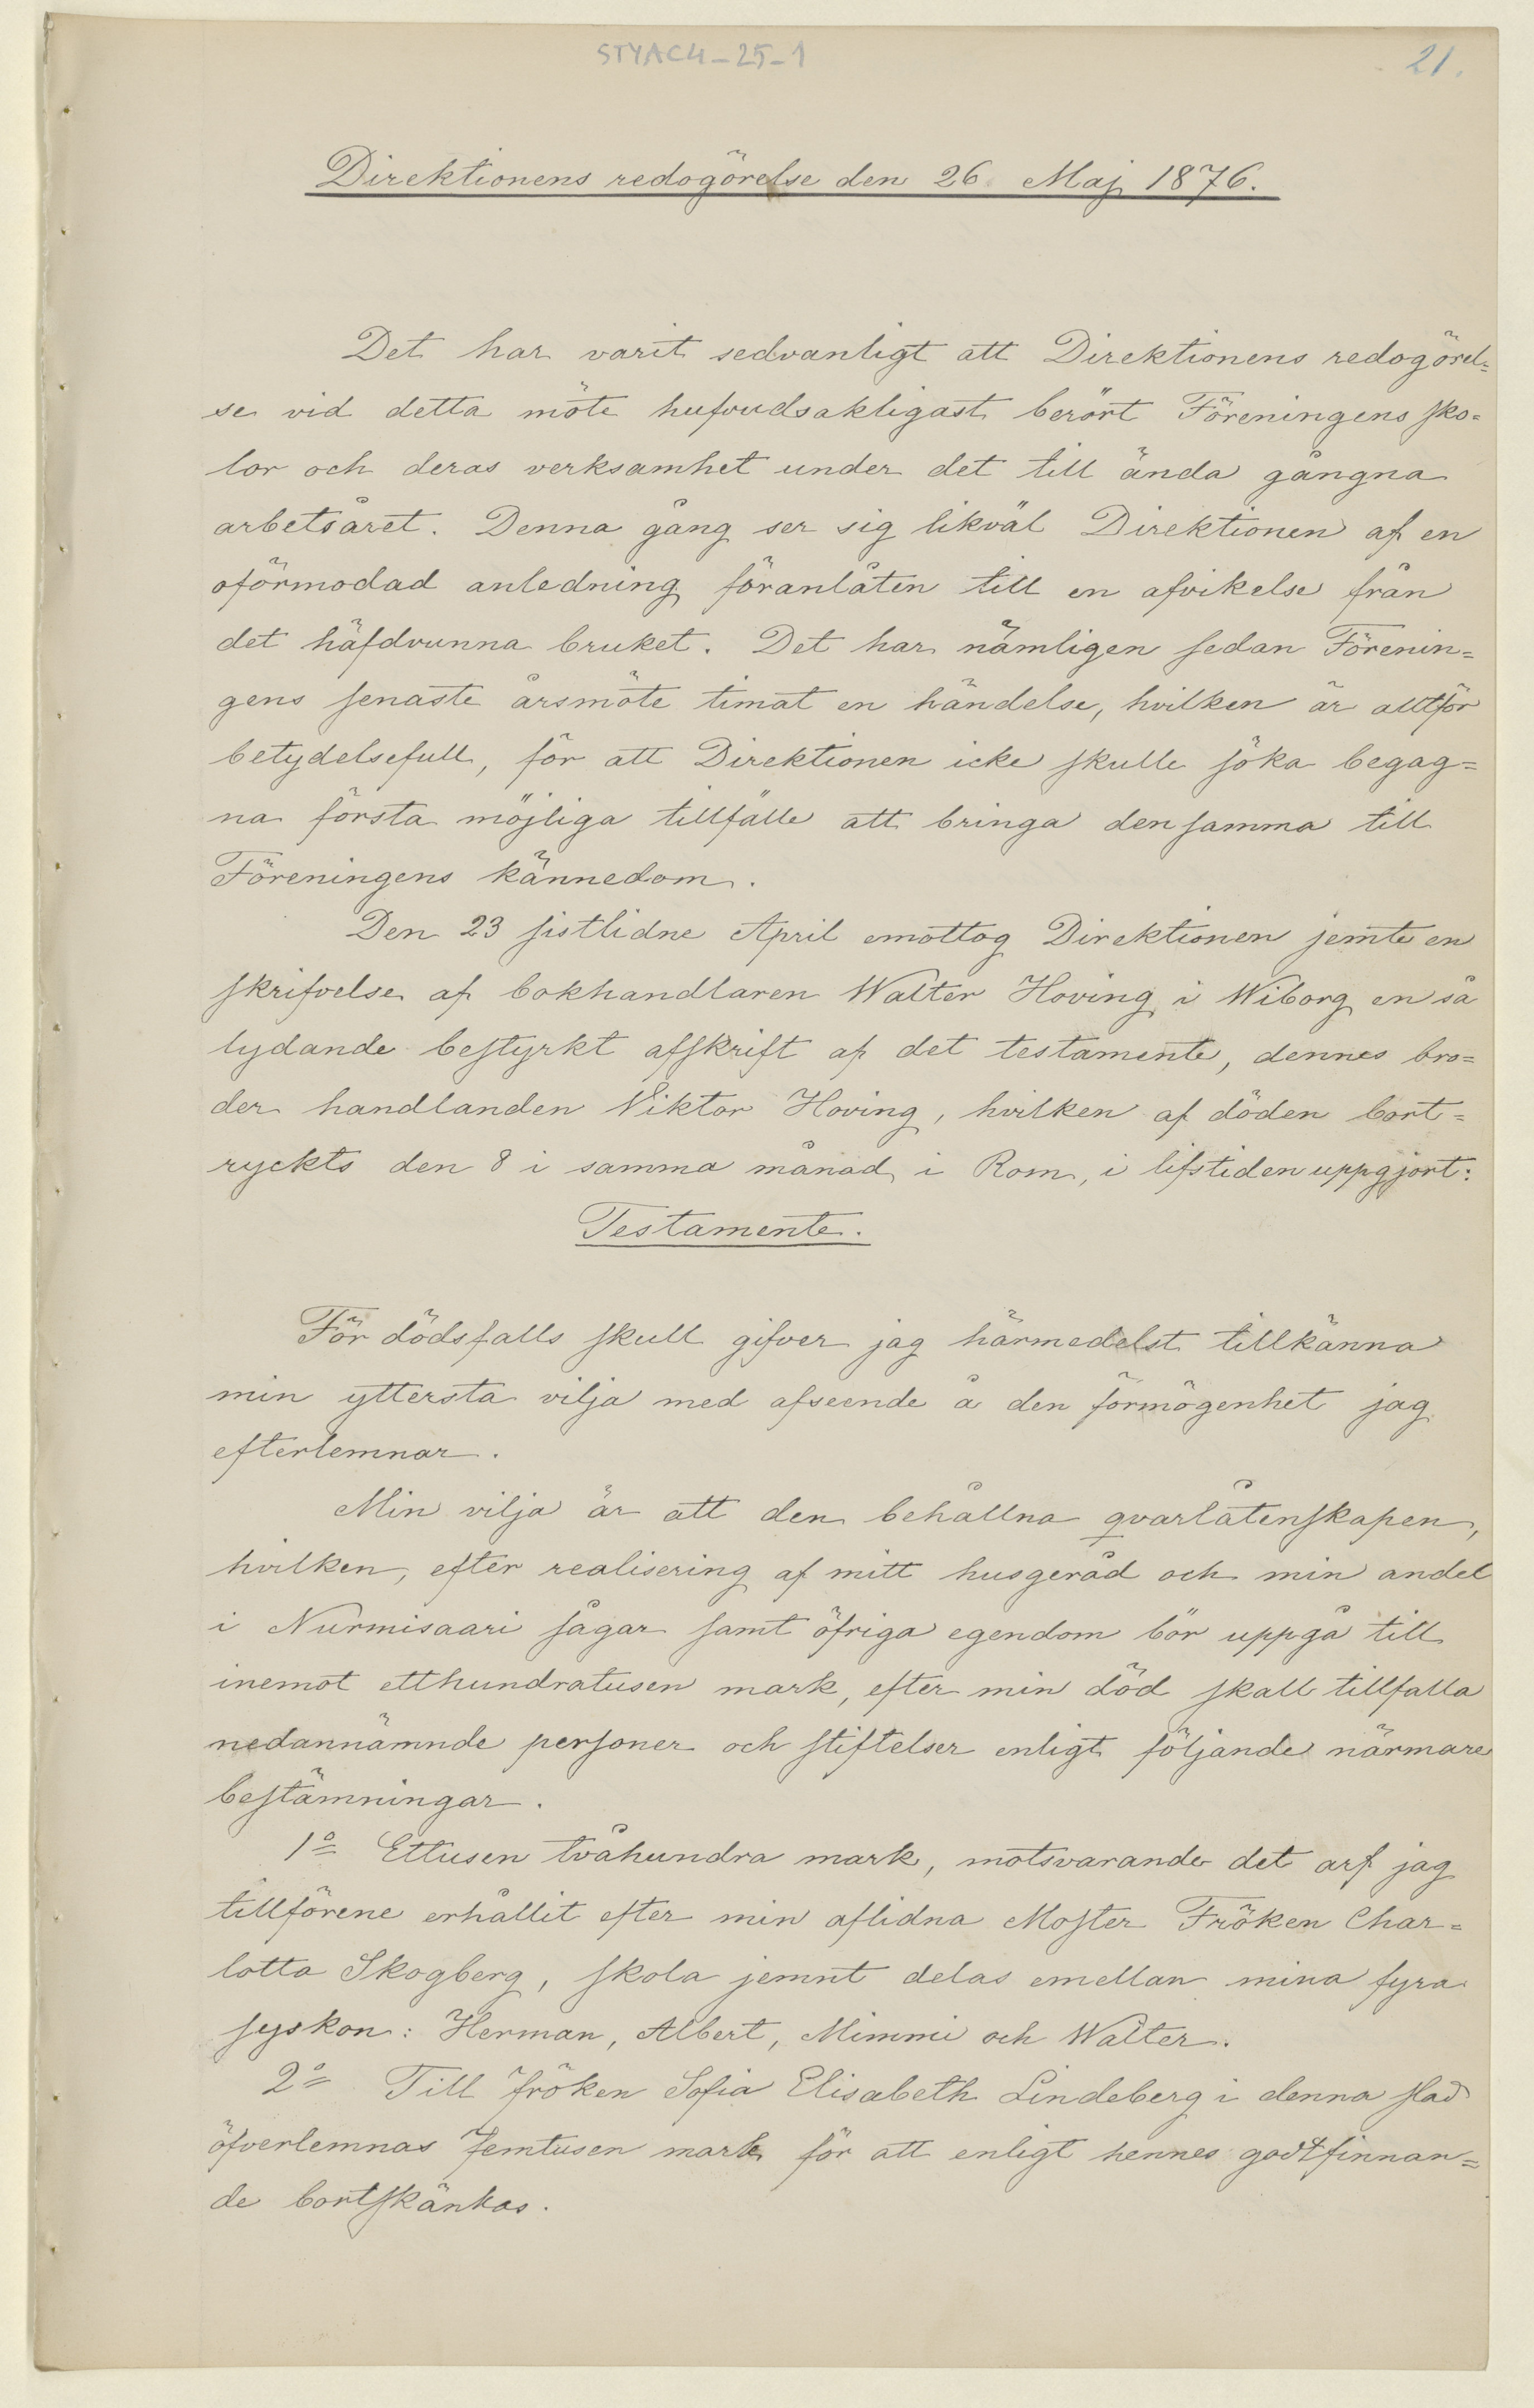 STYAC4-25-1
21.
Direktionens redogörelse den 26 Maj 1876.
Det har varit sedvanligt att Direktionens redogörel=
se vid detta möte hufvudsakligast berört Föreningens sko=
lor och deras verksamhet under det till ända gångna
arbetsåret. Denna gång ser sig likväl Direktionen af en
oförmodad anledning föranlåten till en afvikelse från
det häfdvunna bruket. Det har nämligen sedan Förenin=
gens senaste årsmöte timat en händelse, hvilken är alltför
betydelsefull, för att Direktionen icke skulle söka begag=
na första möjliga tillfälle att bringa densamma till
Föreningens kännedom.
Den 23 sistlidne April emottog Direktionen jemte en
skrifvelse af bokhandlaren Walter Hoving i Wiborg en så
lydande bestyrkt afskrift af det testamente, dennes bro=
der handlanden Viktor Hoving, hvilken af döden bort=
ryckts den 8 i samma månad i Rom, i lifstiden uppgjort:
Testamente.
För dödsfalls skull gifver jag härmedelst tillkänna
min yttersta vilja med afseende å den förmögenhet jag
efterlemnar.
Min vilja är att den behållna qvarlåtenskapen,
hvilken, efter realisering af mitt husgeråd och min andel
i Nurmisaari sågar samt öfriga egendom bör uppgå till
inemot etthundratusen mark, efter min död skall tillfalla
nedannämnde personer och stiftelser enligt följande närmare
bestämningar.
1o Ettusen tvåhundra mark, motsvarande det arf jag
tillförene erhållit efter min aflidna Moster Fröken Char=
lotta Skogberg, skola jemnt delas emellan mina fyra
syskon: Herman, Albert, Mimmi och Walter.
2o Till fröken Sofia Elisabeth Lindeberg i denna stad
öfverlemnas femtusen mark för att enligt hennes godtfinnan=
de bortskänkas.